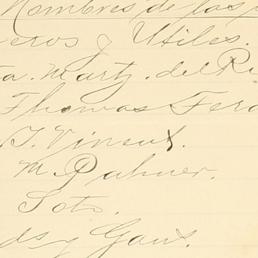 Nombres de los
eros y Utiles.
ta. Martz. del Ri
Thomas Ferd
B. J. Vinsul.
M. Palmer.
Soto.
ds y Gant.